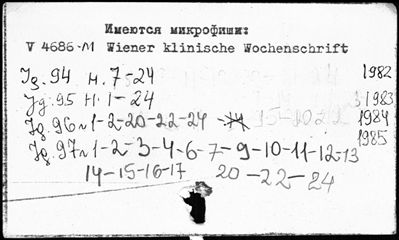 Имеются микрофиши:
V 4686-М Wiener klinische Wochenschrift
Jg. 94 н. 7-24 1982
Jg. 95 н. 1-24 1983
Jg. 96 н 1-2-20-22-24 1984
Jg. 97 н 1-2-3-4-6-7-9-10-11-12-13 1985
14-15-16-17 20-22-24